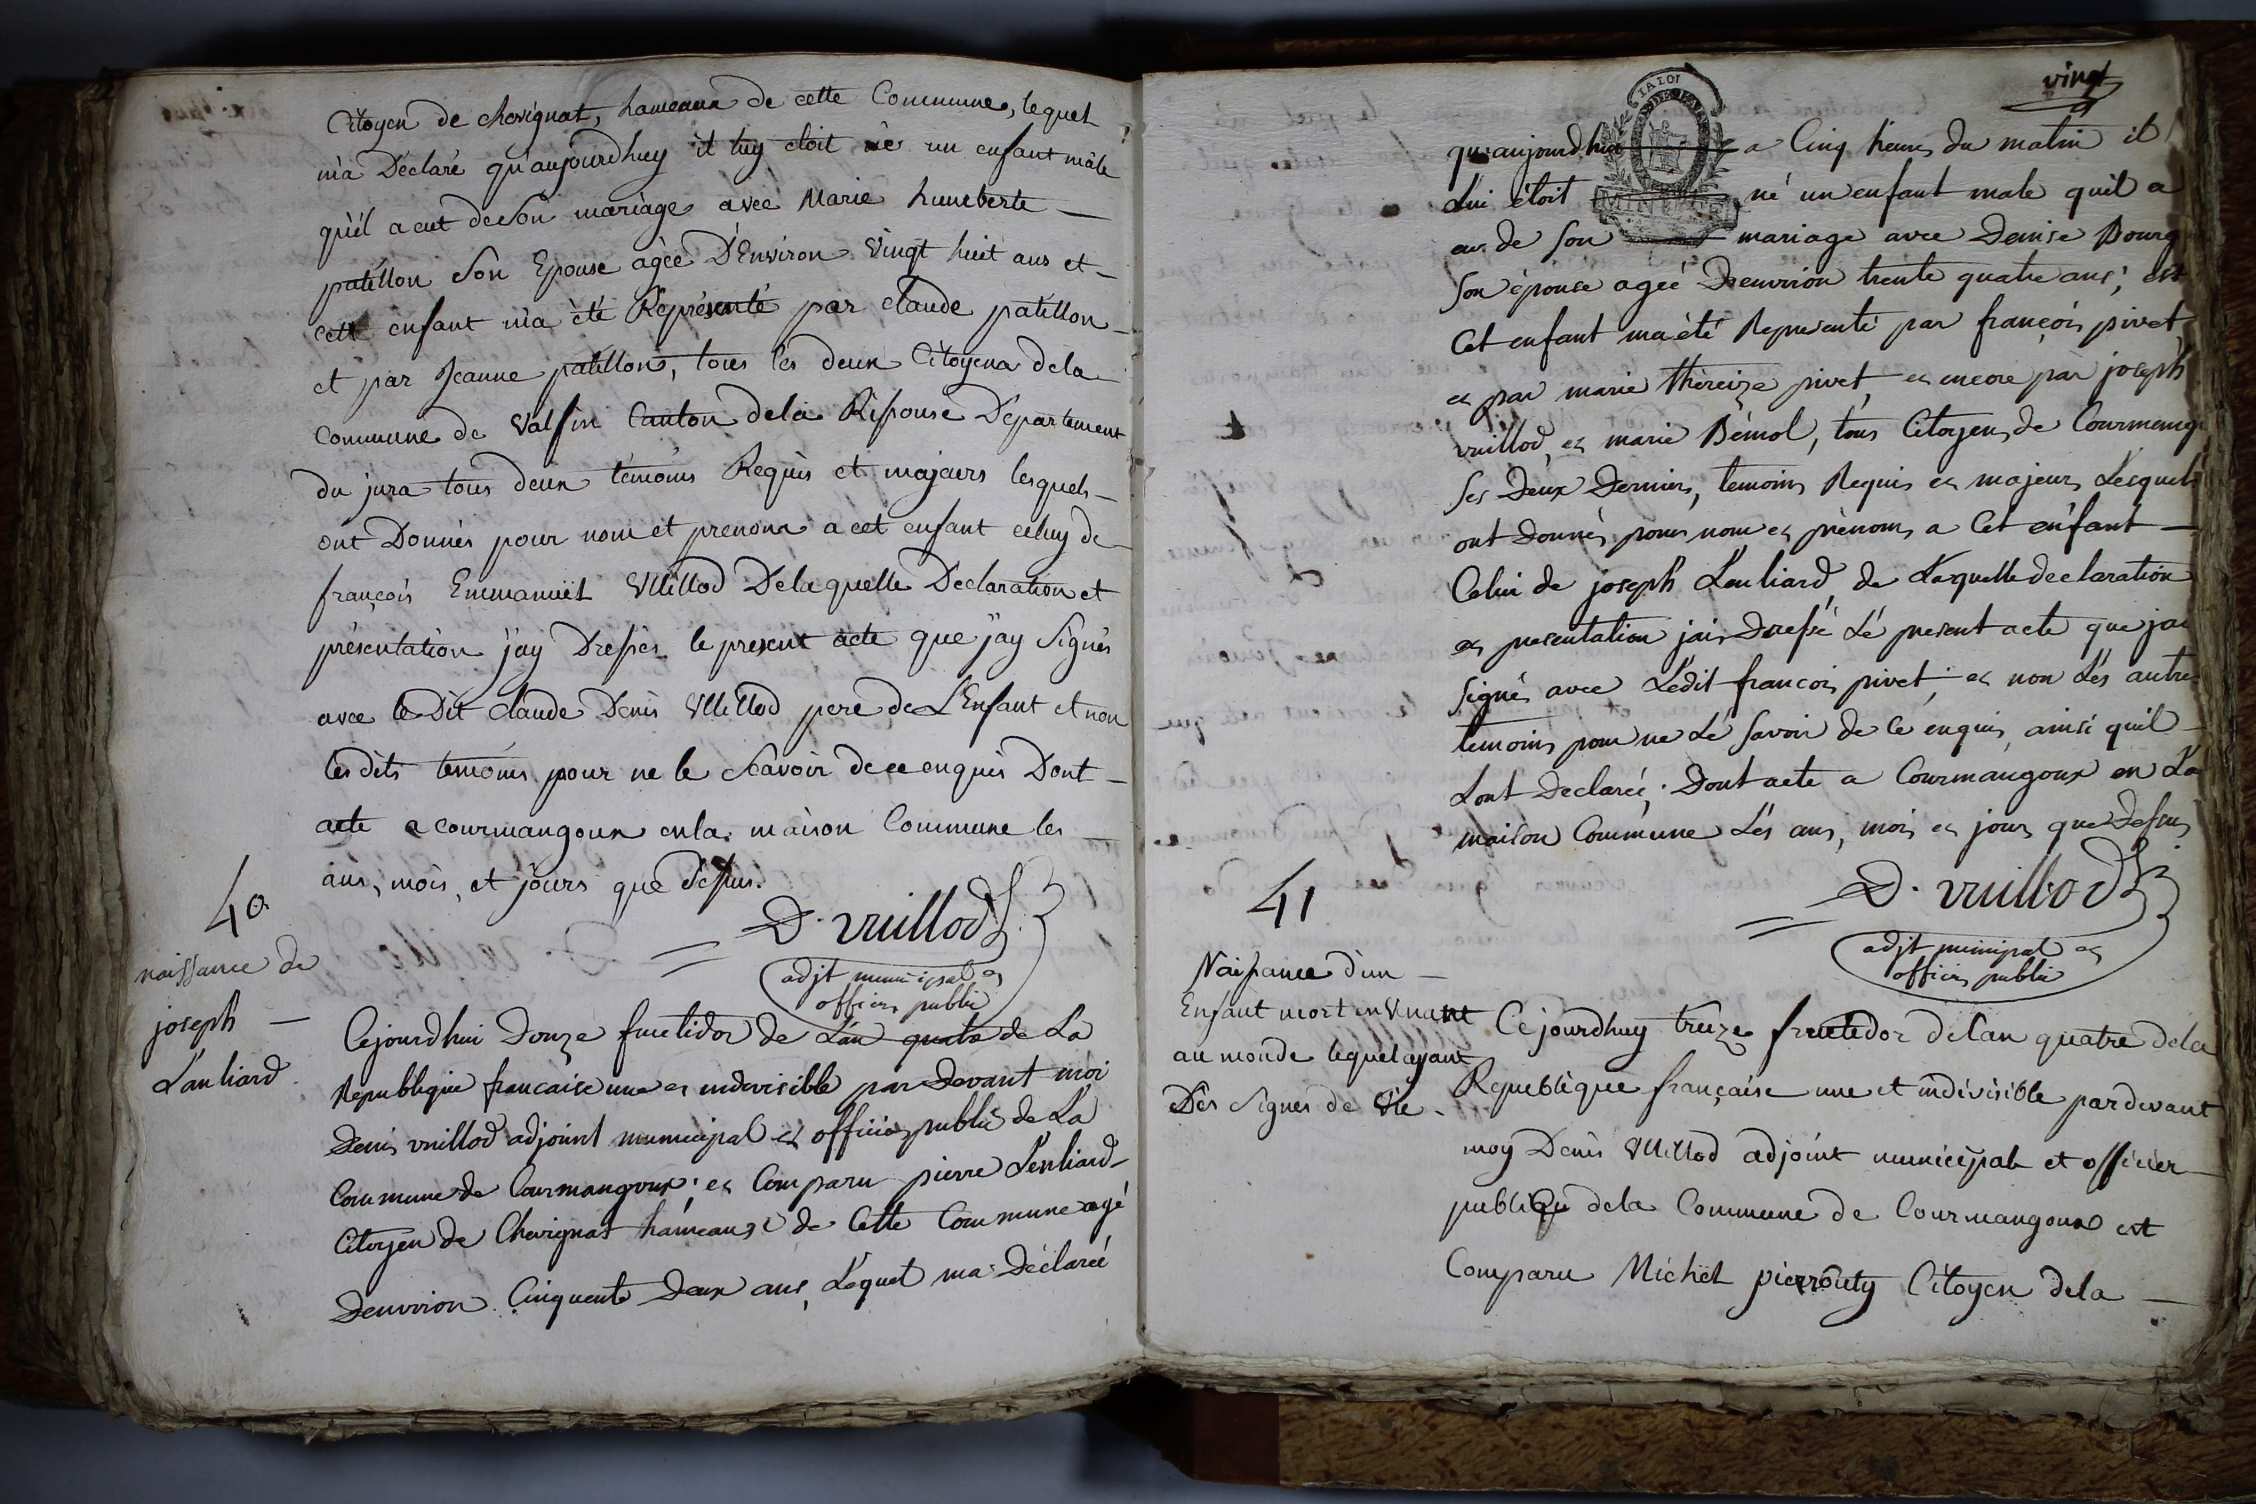 Citoyen de chevignat, hameaux de cette Commune, lequel
m'a Déclaré qu'aujourdhuy it luy etoit né un enfant mâle
qu'il a eut de son mariage avec Marie huneberte —
patillon son Epouse agée D'Environ Vingt huit ans et —
cett enfant m'a été Représenté par claude patillon —
et par Jeanne patillon, tous les deux Citoyens dela
Commune de Valfin Canton dela Rifpouse Departement
du jura tous deux témoins Requis et majeurs lesquels —
ont Donnés pour nom et prenom a cet enfant celuy de
françois Emmanuël Vuillod Delaquelle Declaration et
présentation j'ay Dressés le present acte que j'ay Signés
avec le Dit claude Denis Vuillod pere de L'Enfant et non
lesdits temoins pour ne le Scavoir de ce enquis Dont —
acte a courmangoux enla maison Commune les —
ans, mois, et jours que dessus.
D. vuillod
adjt municipal et
officier public
40
naissance de
joseph —
Lauliard.
Cejourdhui Douze fructidor de L'an quatre de La
Republique francaise une et indivisible par Devant moi
Denis vuillod adjoint municipal et officier public de La
Commune de Courmangoux, es Comparu pierre Lauliard —
Citoyen de Chevignat hameaux de Cette Commune agé
Denviron Cinquente Deux ans, Lequel ma Déclaréé
vingt
LA LOI
MINUTE
qu'aujourdhui a Cinq heures du matin il
Lui étoit né un enfant male quil a
eu de son mariage avec Denise Bourg
son épouse ageé Denviron trente quatre ans; est
Cet enfant ma été Representé par françois pivet
es par marie thereize pivet, es encore par joseph
vuillod, es marie Bémol, tous Citoyens de Courmang
ses Deux Derniers, temoins Requis es majeurs Lesquels
ont Donnés pour nom es prénoms a Cet enfant —
Celui de joseph Lauliard, de Laquelle declaration
es presentation jai Dressé Lé present acte que jai
signés avec Ledit francois pivet, es non Lés autres
temoins pour ne Lé savoir de ce enquis, ainsi quil —
Lont Declarée; Dont acte a Courmangoux en La
maison Commune Lés ans, mois es jours que Dessus
D. vuillod
adjt municipal es
officier public
41
Naissance d'un —
Enfant mort en Venant
au monde lequel ayant
Dés signes de Vie.
Ce jourdhuy treize fructidor de lan quatre dela
Republique française une et indivisible pardevant
moy Denis Vuillod adjoint municipale et officier —
publiqu dela Commune de Courmangoux est
Comparu Michel pierrouty Citoyen dela —